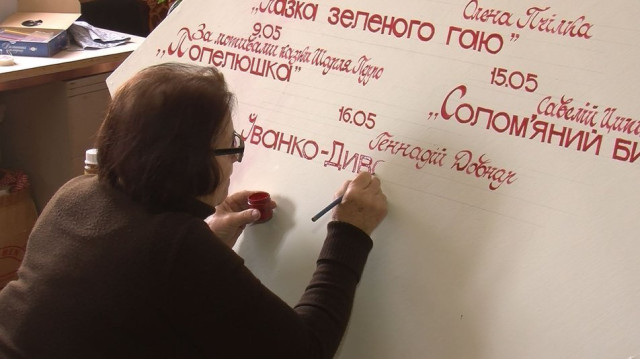 „Казка зеленого гаю”
Олена Пчілка
9.05
За мотивами казки Шарля Перо
„Попелюшка”
15.05
Савелій Цип
„Солом'яний би
16.05
Геннадій Довнар
Іванко-Диво